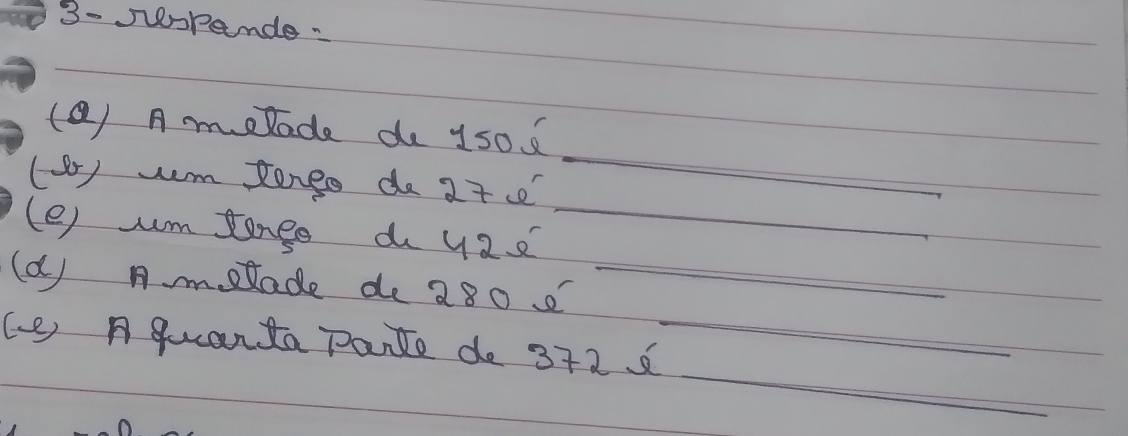 3- responde:
(a) A metade de 150 é
(b) um terço de 27 é
(c) um terço de 42 é
(d) A metade de 280 é
(e) A quarta Parte de 372 é